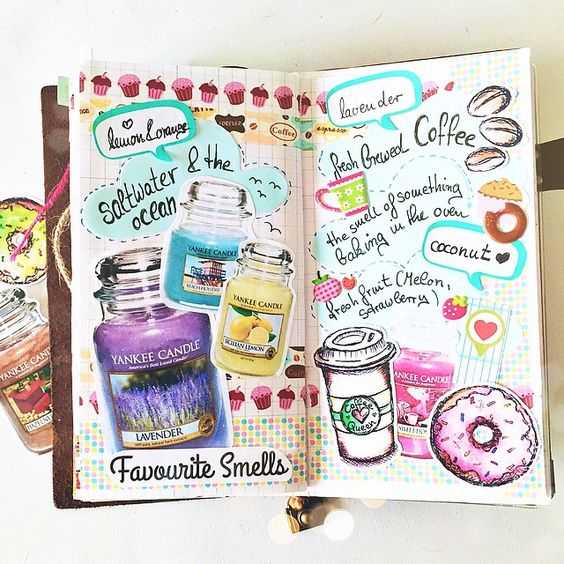 lemon & orange
saltwater & the
ocean
YANKEE CANDLE
BEACH HOLIDAY
YANKEE CANDLE
SICILIAN LEMON
YANKEE CANDLE
America's Best Loved Candle
LAVENDER
Favourite Smells
Coffee
espresso
lavender
fresh brewed Coffee
the smell of something
baking in the oven
coconut
fresh fruit (Melon,
strawberry)
Coffee
Queen
YANKEE CANDLE